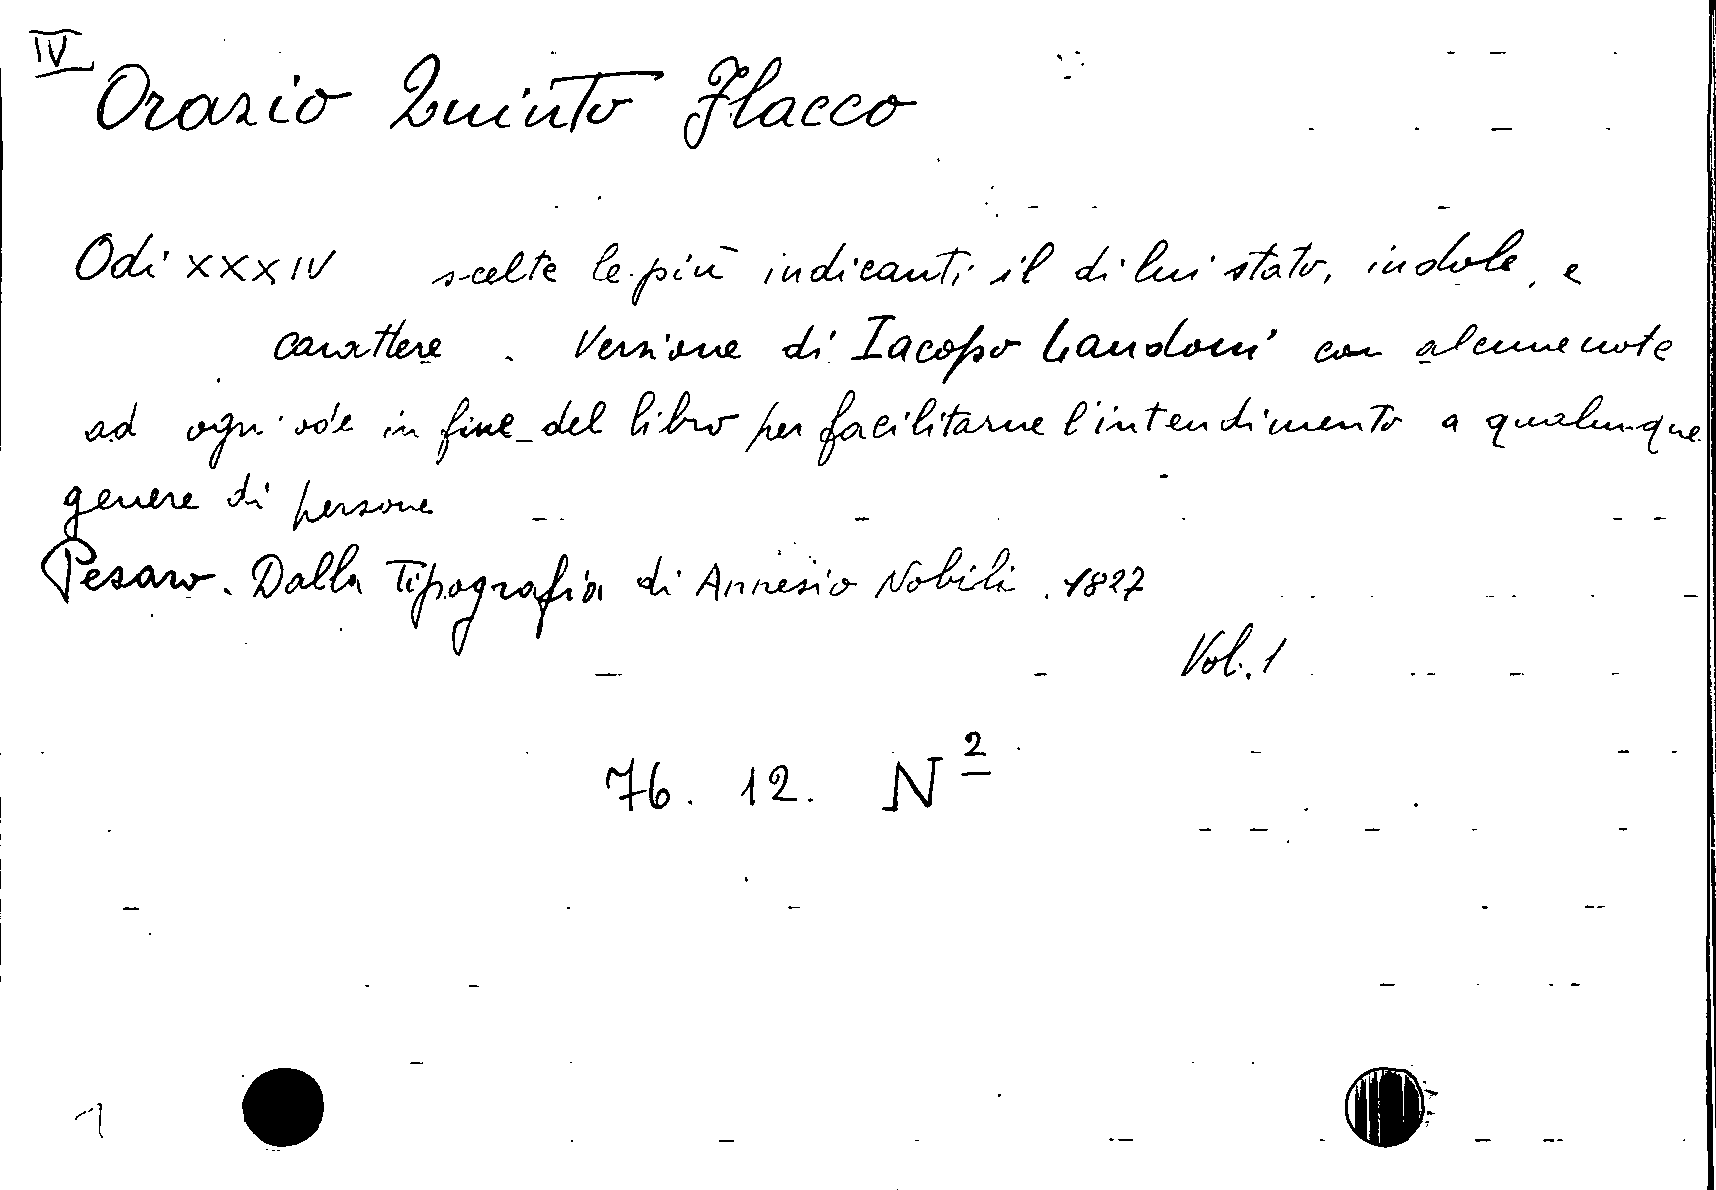 IV
Orazio Quinto Flacco
Odi XXXIV scelte le più indicanti il di lui stato, indole, e
carattere. Versione di Iacopo Landoni con alcune note
ad ogni ode in fine del libro per facilitarne l'intendimento a qualunque
genere di persone
Pesaro. Dalla Tipografia di Annesio Nobili. 1827
Vol. 1
76. 12. N 2
1